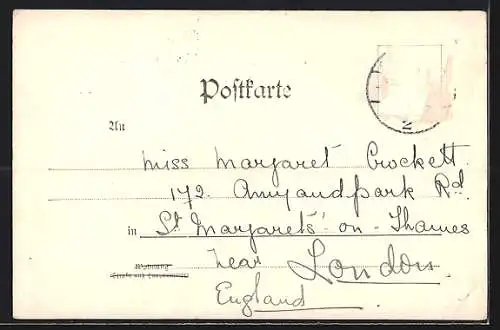 Postkarte
An
Miss Margaret Crockett.
172. Amyandpark Rd.
in St Margarets' on - Thames
Wohnung near London.
(Straße und Hausnummer)
England